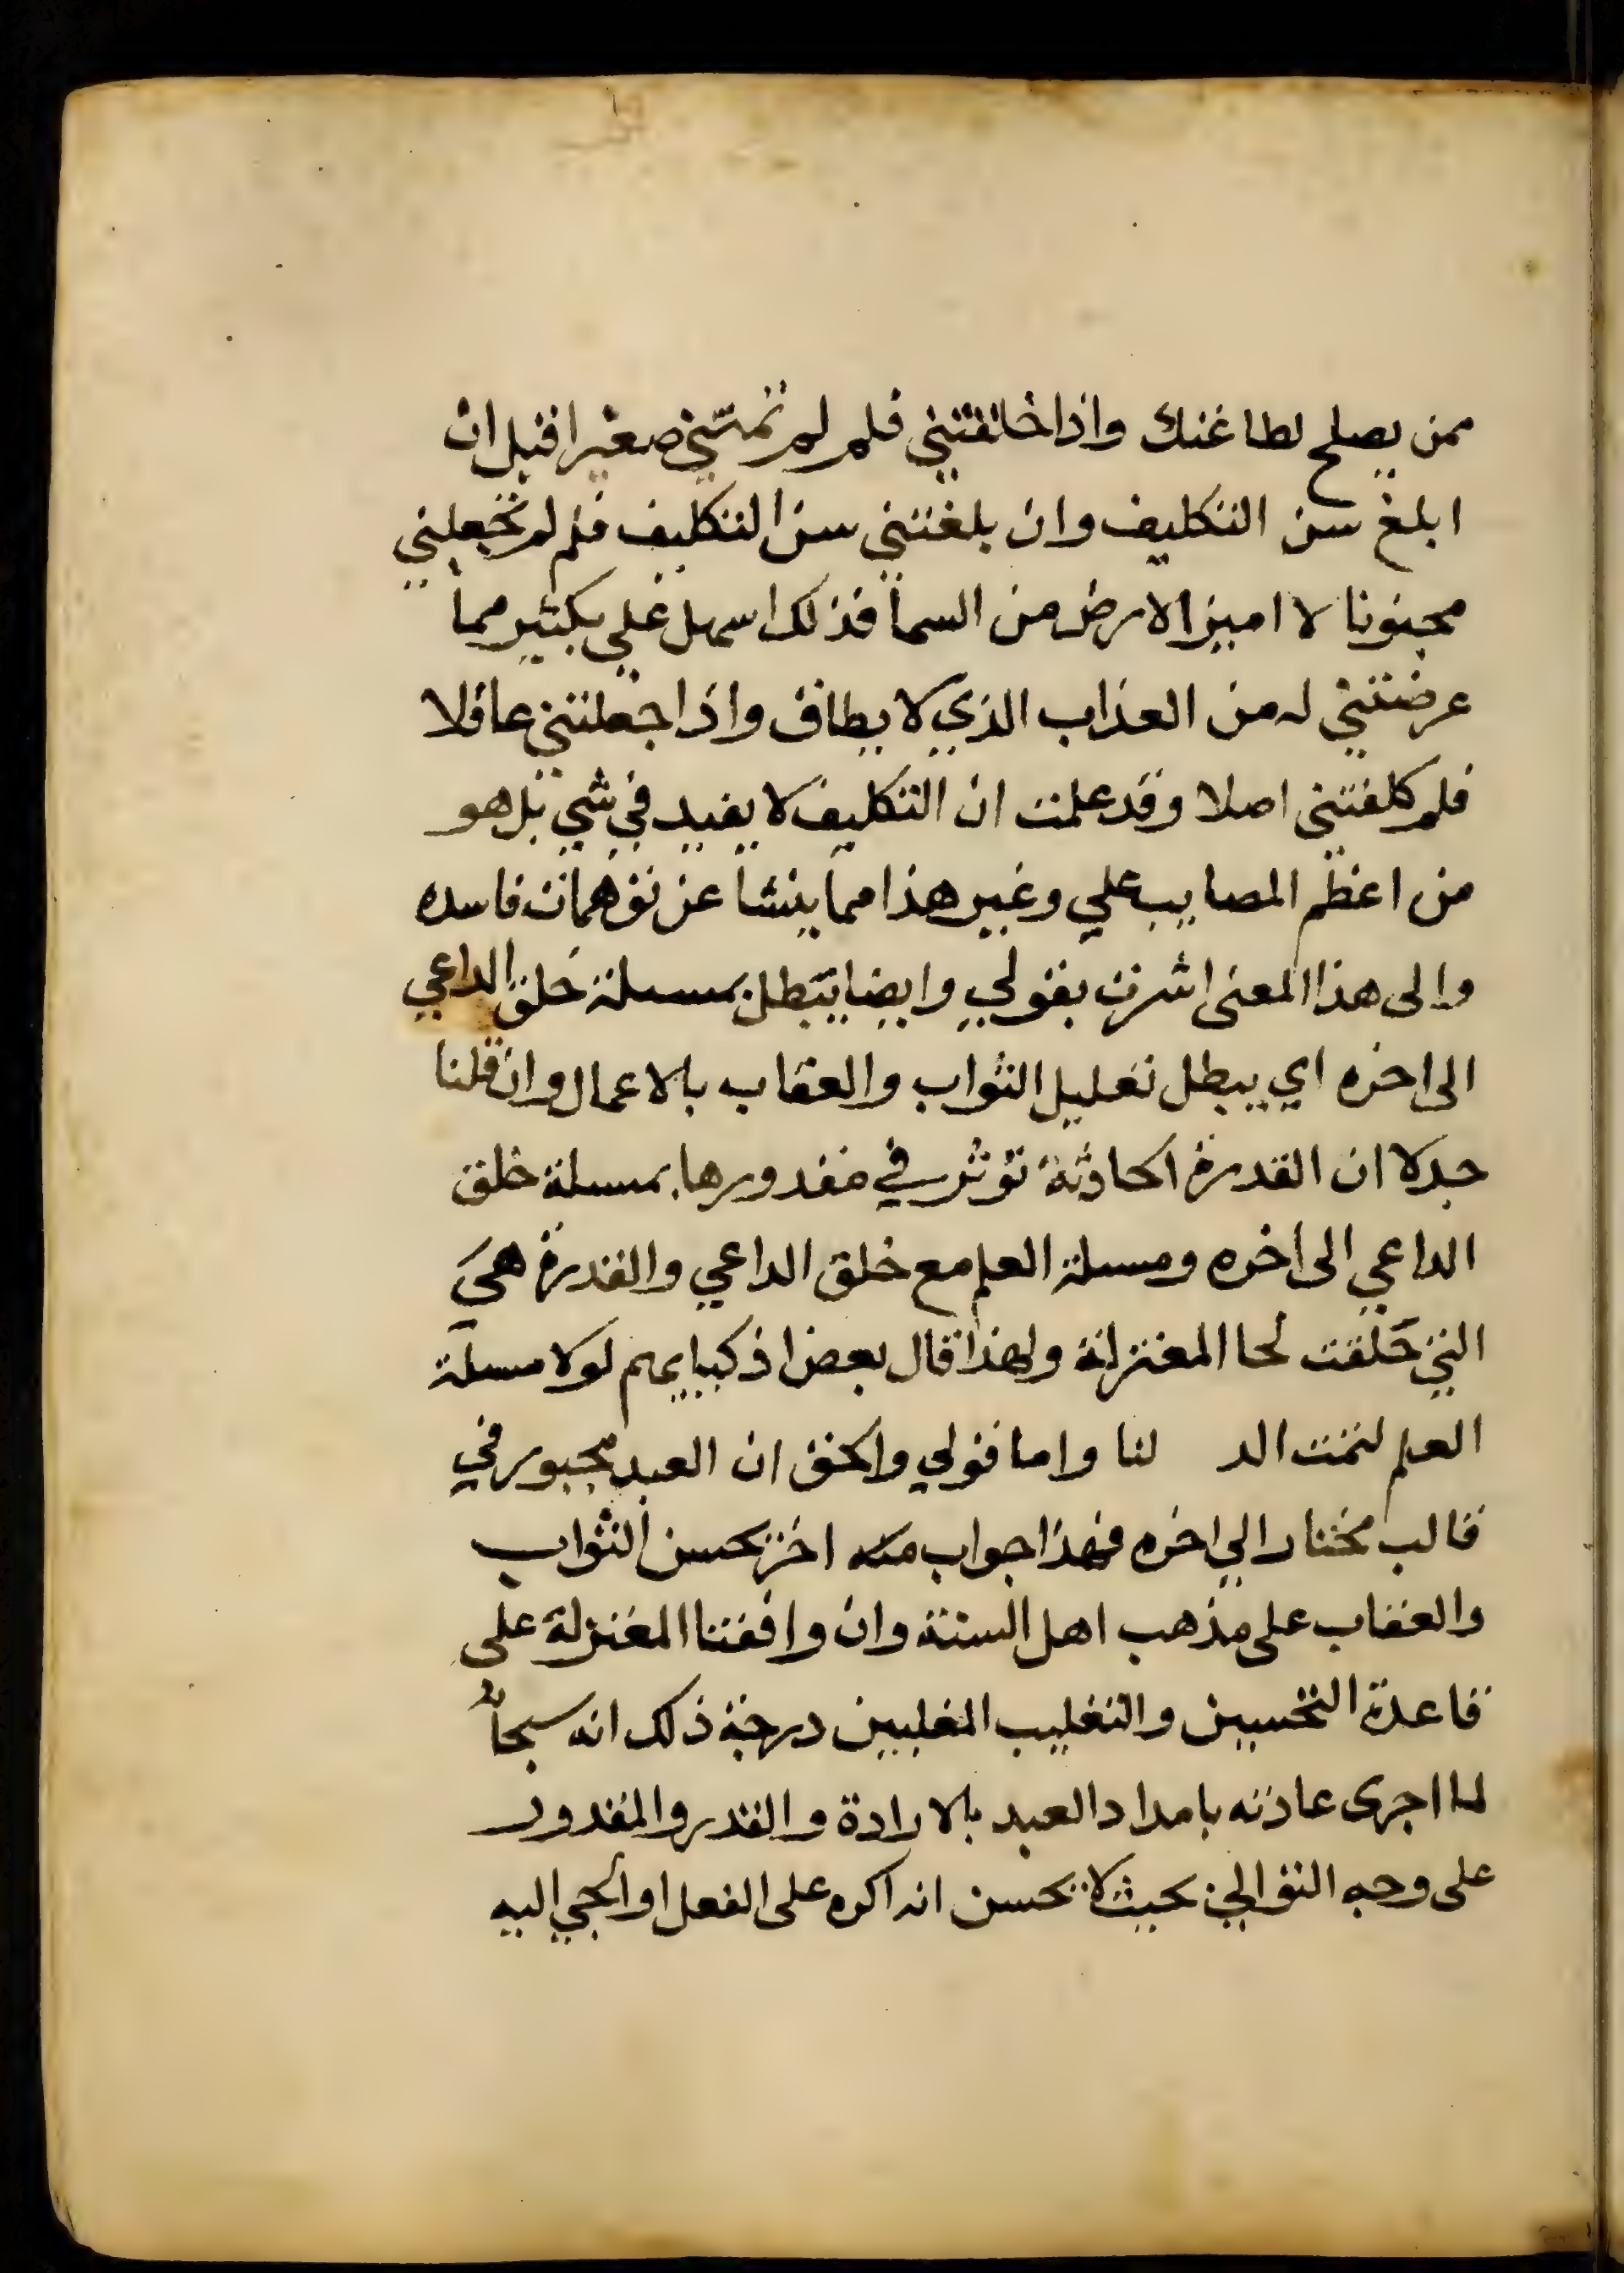 ممن يصلح لطاعتك واذا خالفتني فلم لم تمتني صغيرا قبل ان
ابلغ سن التكليف وان بلغتني سن التكليف فلم لم تجعلني
مجنونا لا اميز الارض من السما فذلك اسهل علي بكثير مما
عرضتني له من العذاب الذي لا يطاق واذا جعلتني عاقلا
فلم كلفتني اصلا وقد علمت ان التكليف لا يفيد في شي بل هو
من اعظم المصايب علي وغير هذا مما ينشا عن توهمات فاسده
والى هذا المعنى اشرت بقولي وايضا يبطل بمسلة خلق الداعي
الى اخره اي يبطل تعليل الثواب والعقاب بالاعمال وان قلنا
جدلا ان القدرة الحادثة توثر في مقدورها بمسلة خلق
الداعي الى اخره ومسلة العلم مع خلق الداعي والقدرة هي
التي حلقت لحا المعتزلة ولهذا قال بعض اذكيايهم لولا مسلة
العلم لتمت الد لنا واما قولي والحق ان العبد مجبور في
قالب مختار الي اخره فهذا جواب منه اخر بحسن الثواب
والعقاب على مذهب اهل السنة وان وافقنا المعتزلة على
قاعدة التحسين والتغليب المغلبين درجة ذلك انه سبحانه
لما اجرى عادته بامداد العبد بالارادة والقدر والمقدور
على وجه التوالي بحيث لا يحسن انه اكره على الفعل او الجي اليه